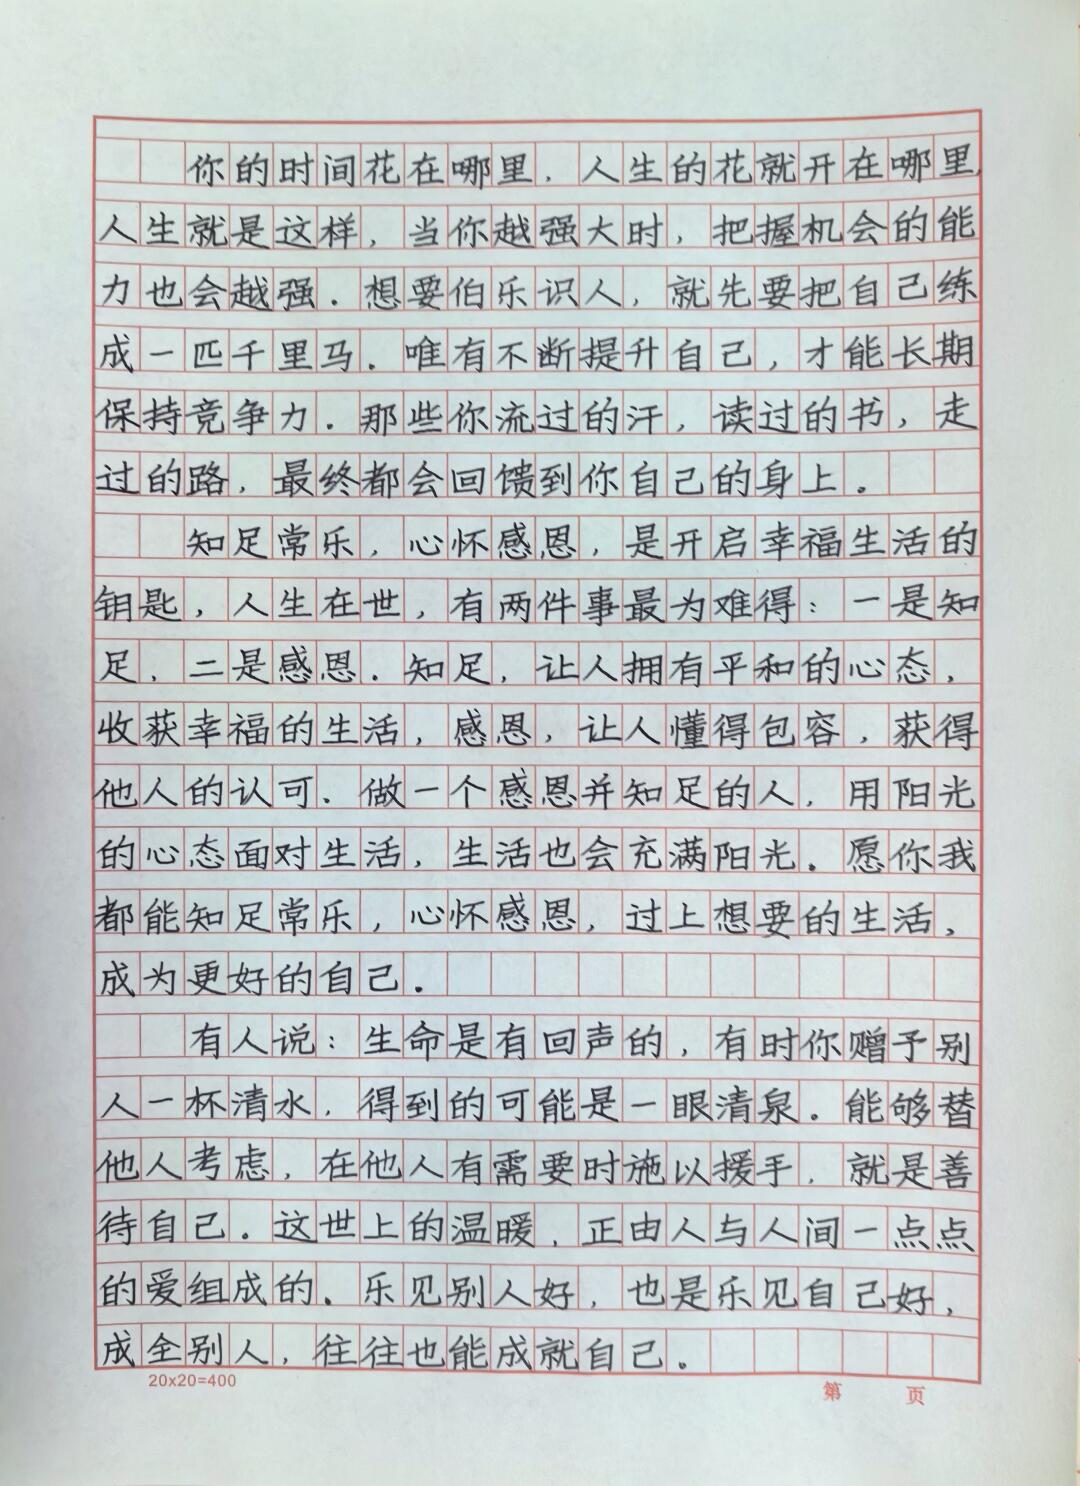 你的时间花在哪里，人生的花就开在哪里，
人生就是这样，当你越强大时，把握机会的能
力也会越强．想要伯乐识人，就先要把自己练
成一匹千里马．唯有不断提升自己，才能长期
保持竞争力．那些你流过的汗，读过的书，走
过的路，最终都会回馈到你自己的身上。
知足常乐，心怀感恩，是开启幸福生活的
钥匙，人生在世，有两件事最为难得：一是知
足，二是感恩．知足，让人拥有平和的心态，
收获幸福的生活，感恩，让人懂得包容，获得
他人的认可．做一个感恩并知足的人，用阳光
的心态面对生活，生活也会充满阳光。愿你我
都能知足常乐，心怀感恩，过上想要的生活，
成为更好的自己．
有人说：生命是有回声的，有时你赠予别
人一杯清水，得到的可能是一眼清泉。能够替
他人考虑，在他人有需要时施以援手，就是善
待自己。这世上的温暖，正由人与人间一点点
的爱组成的。乐见别人好，也是乐见自己好，
成全别人，往往也能成就自己。
20x20=400
第 页